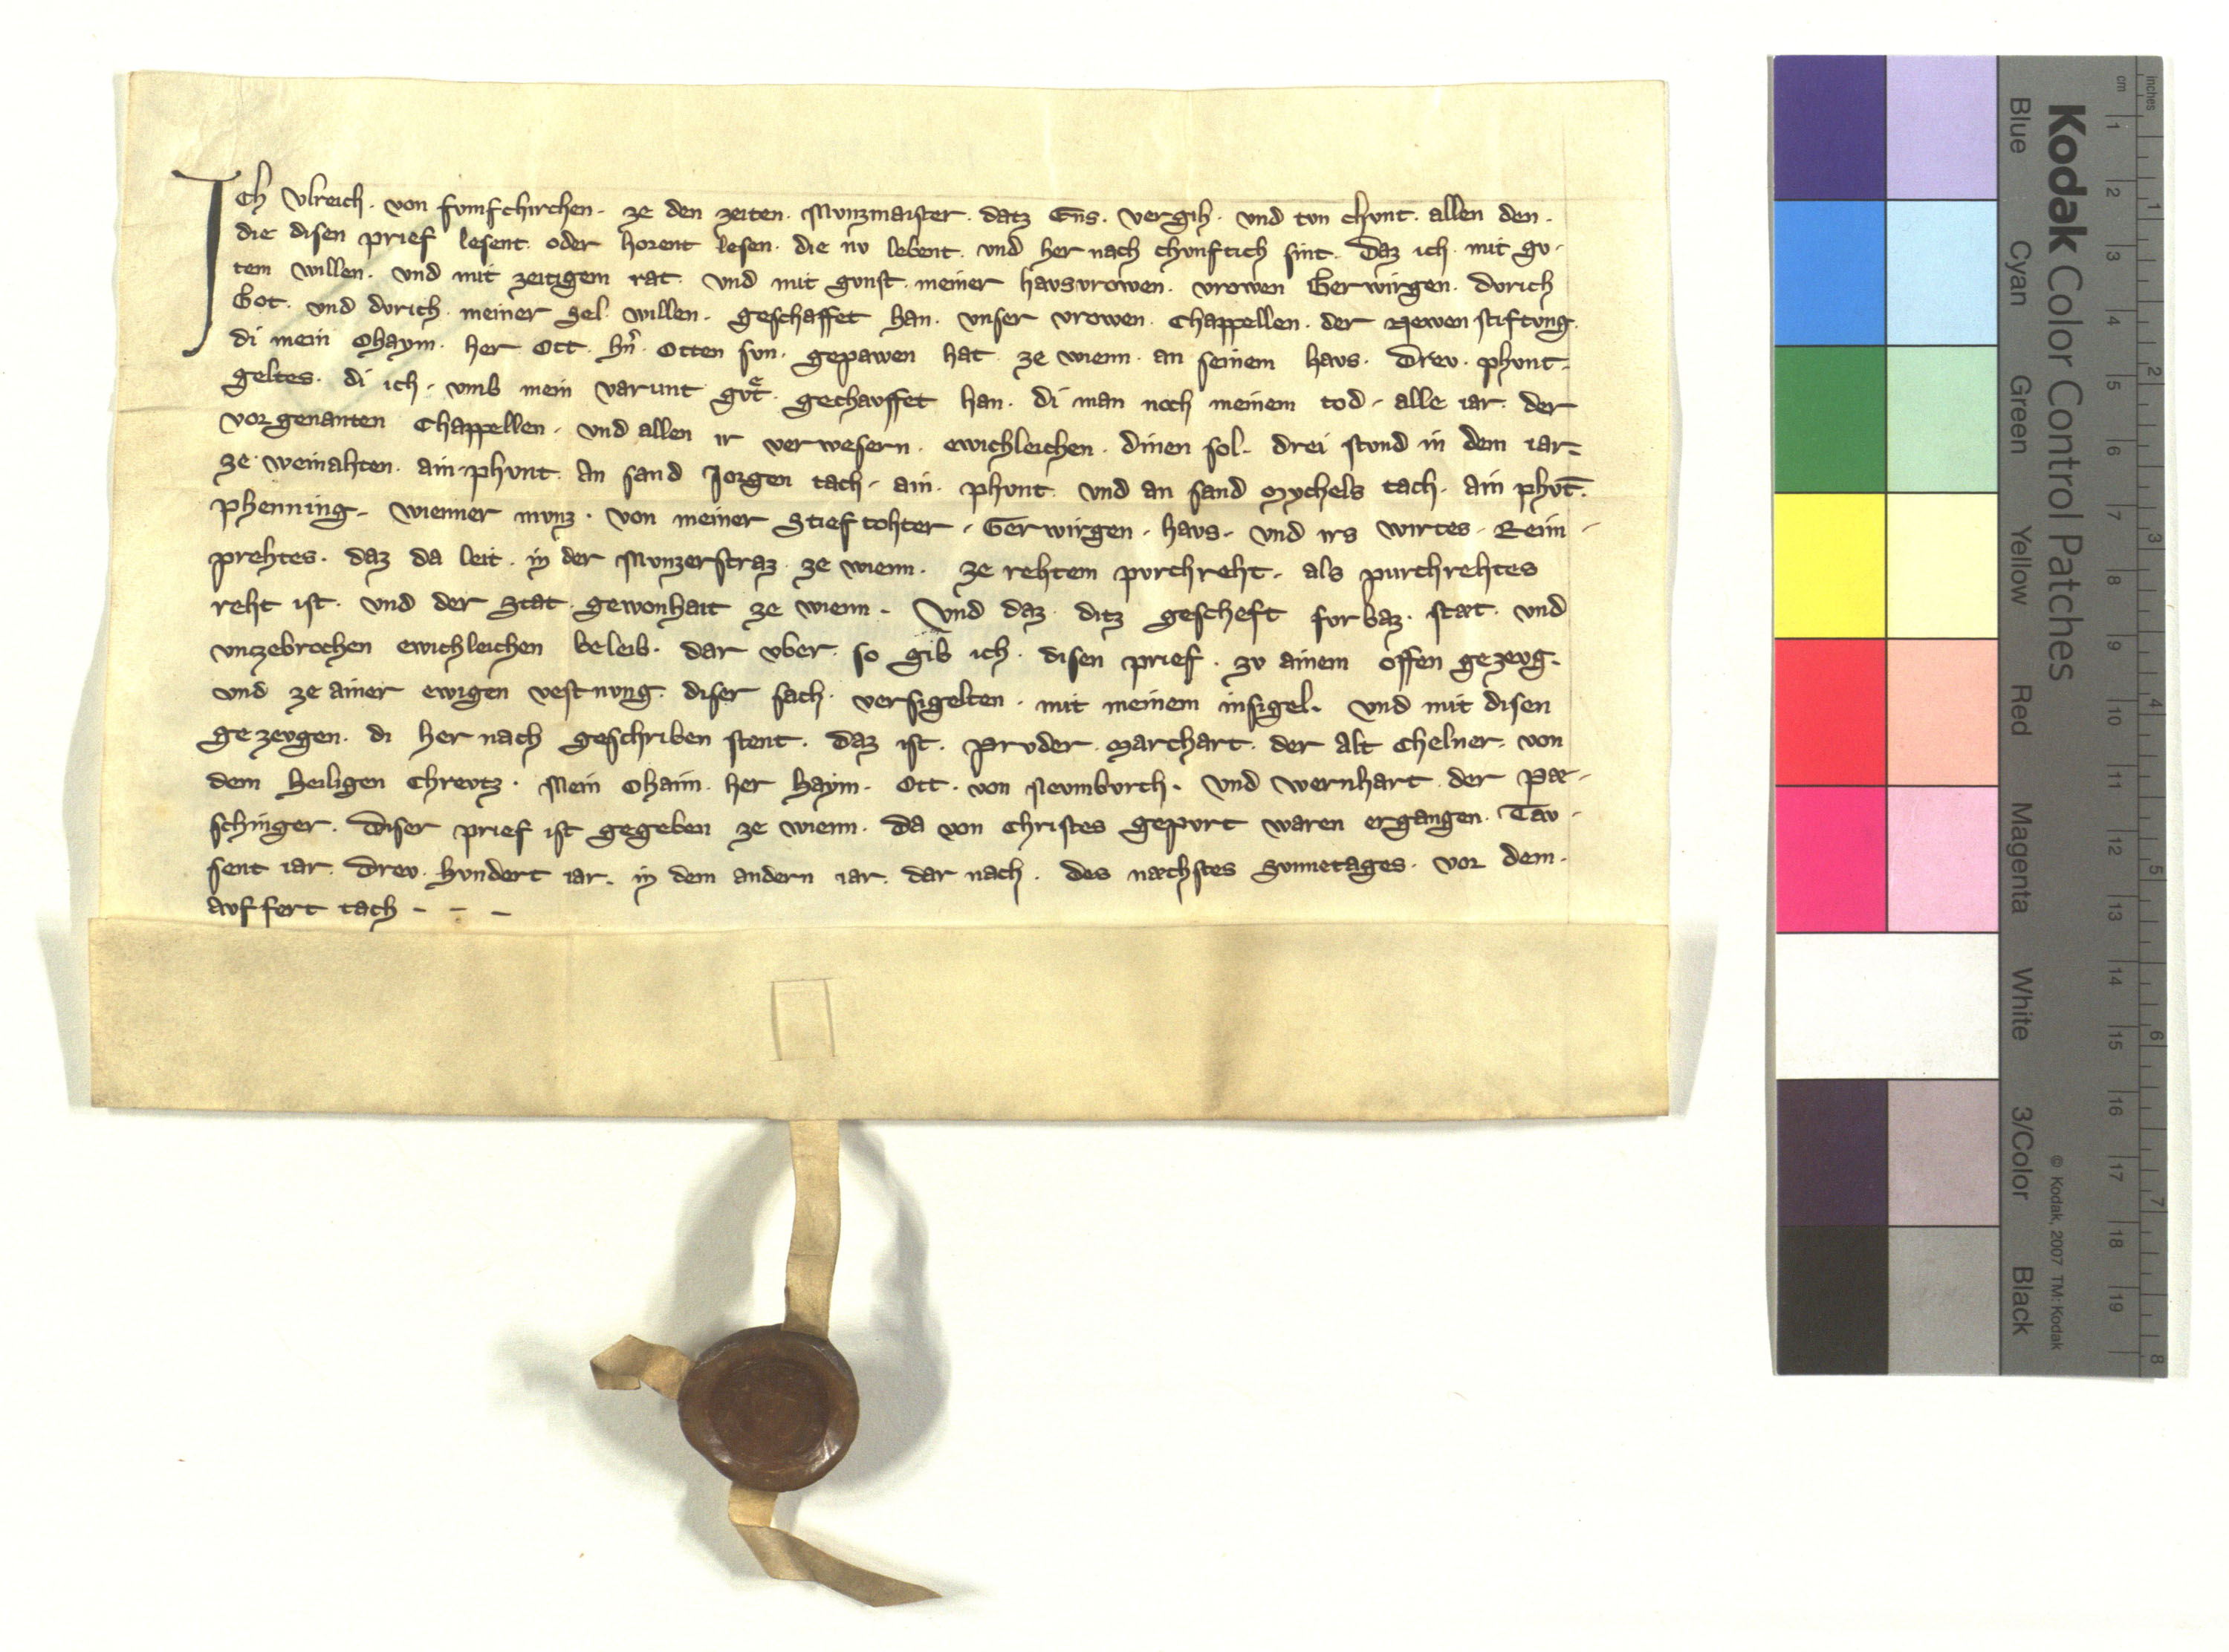 Ich Ulreich. von funfchirchen. ze den zeiten. Munzmaister. datz Ens. vergih. und tun chunt. allen den.
die disen prief lesent. oder horent lesen. die nu lebent. und her nach chunftich sint. Daz ich. mit gu-
tem willen. und mit zeitigem rat. und mit gunst. meiner hausvrowen. vrowen Gerwirgen. durich
Got. und durich. meiner Sel. willen. geschaffet han. unser vrowen. Chappellen. der Newen stiftung.
di mein Ohaym. her Ott. hñ. Otten sun. gepawen hat. ze wienn. an seinem haus. Drev. phunt.
geltes. di ich. umb mein varunt gut. gechauffet han. di man noch meinem tod. alle iar. der
vorgenanten Chappellen. und allen ir verwesern. ewichleichen. dinen sol. drei stund in dem iar.
ze weinahten. ain phunt. An sand Jorgen tach. ain. phunt. und an sand Mychels tach. ain phūt.
phenning. wienner munz. von meiner Stieftohter. Gerwirgen. haus. und irs wirtes. Reim-
prehtes. daz da leit. in der Munzerstraz. ze wienn. ze rehtem purchreht. als purchrehtes
reht ist. und der Stat. gewonhait ze wienn. Und daz ditz gescheft furbaz. stæt. und
unzebrochen ewichleichen beleib. dar uber. so gib ich. disen prief. zu ainem offen gezeug.
und ze ainer ewigen vestnung. diser sach. versigelten. mit meinem insigel. und mit disen
gezeugen. di her nach geschriben stent. daz ist. pruder. Marchart. der alt Chelner. von
dem heiligen Chreutz. Mein Ohaim. her haym. Ott. von Neumburch. und wernhart. der Pæ-
schinger. Diser prief ist gegeben ze wienn. da von Christes gepurt waren ergangen. Tau-
sent iar. Drev. hundert iar. in dem andern iar. dar nach. des næchstes Sunnetages. vor dem.
auffert tach - - -
Kodak Color Control Patches
Blue Cyan Green Yellow Red Magenta White 3/Color Black
© Kodak, 2007 TM: Kodak
cm 1 2 3 4 5 6 7 8 9 10 11 12 13 14 15 16 17 18 19
inches 1 2 3 4 5 6 7 8